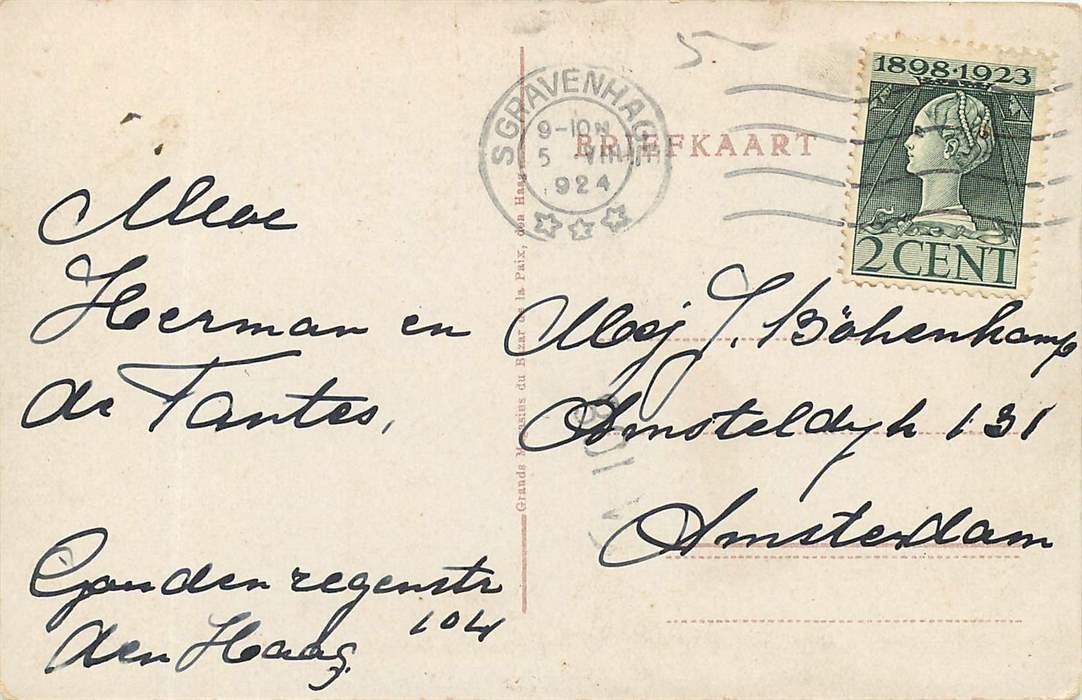 5
1898·1923
2 CENT
SGRAVENHAGE
9-10N
5 VIII
924
BRIEFKAART
Grands Magasins du Bazar de la Paix, den Haag
Moe
Herman en
de Tantes,
Goudenregenstr
104
den Haag.
Mej J. Böhenkamp
Amsteldyk 131
Amsterdam